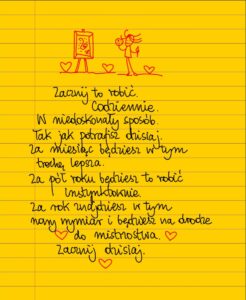 Zacznij to robić.
Codziennie.
W niedoskonały sposób.
Tak jak potrafisz dzisiaj.
Za miesiąc będziesz w tym
trochę lepsza.
Za pół roku będziesz to robić
instynktownie.
Za rok znajdziesz w tym
nowy wymiar i będziesz na drodze
do mistrostwa.
Zacznij dzisiaj.